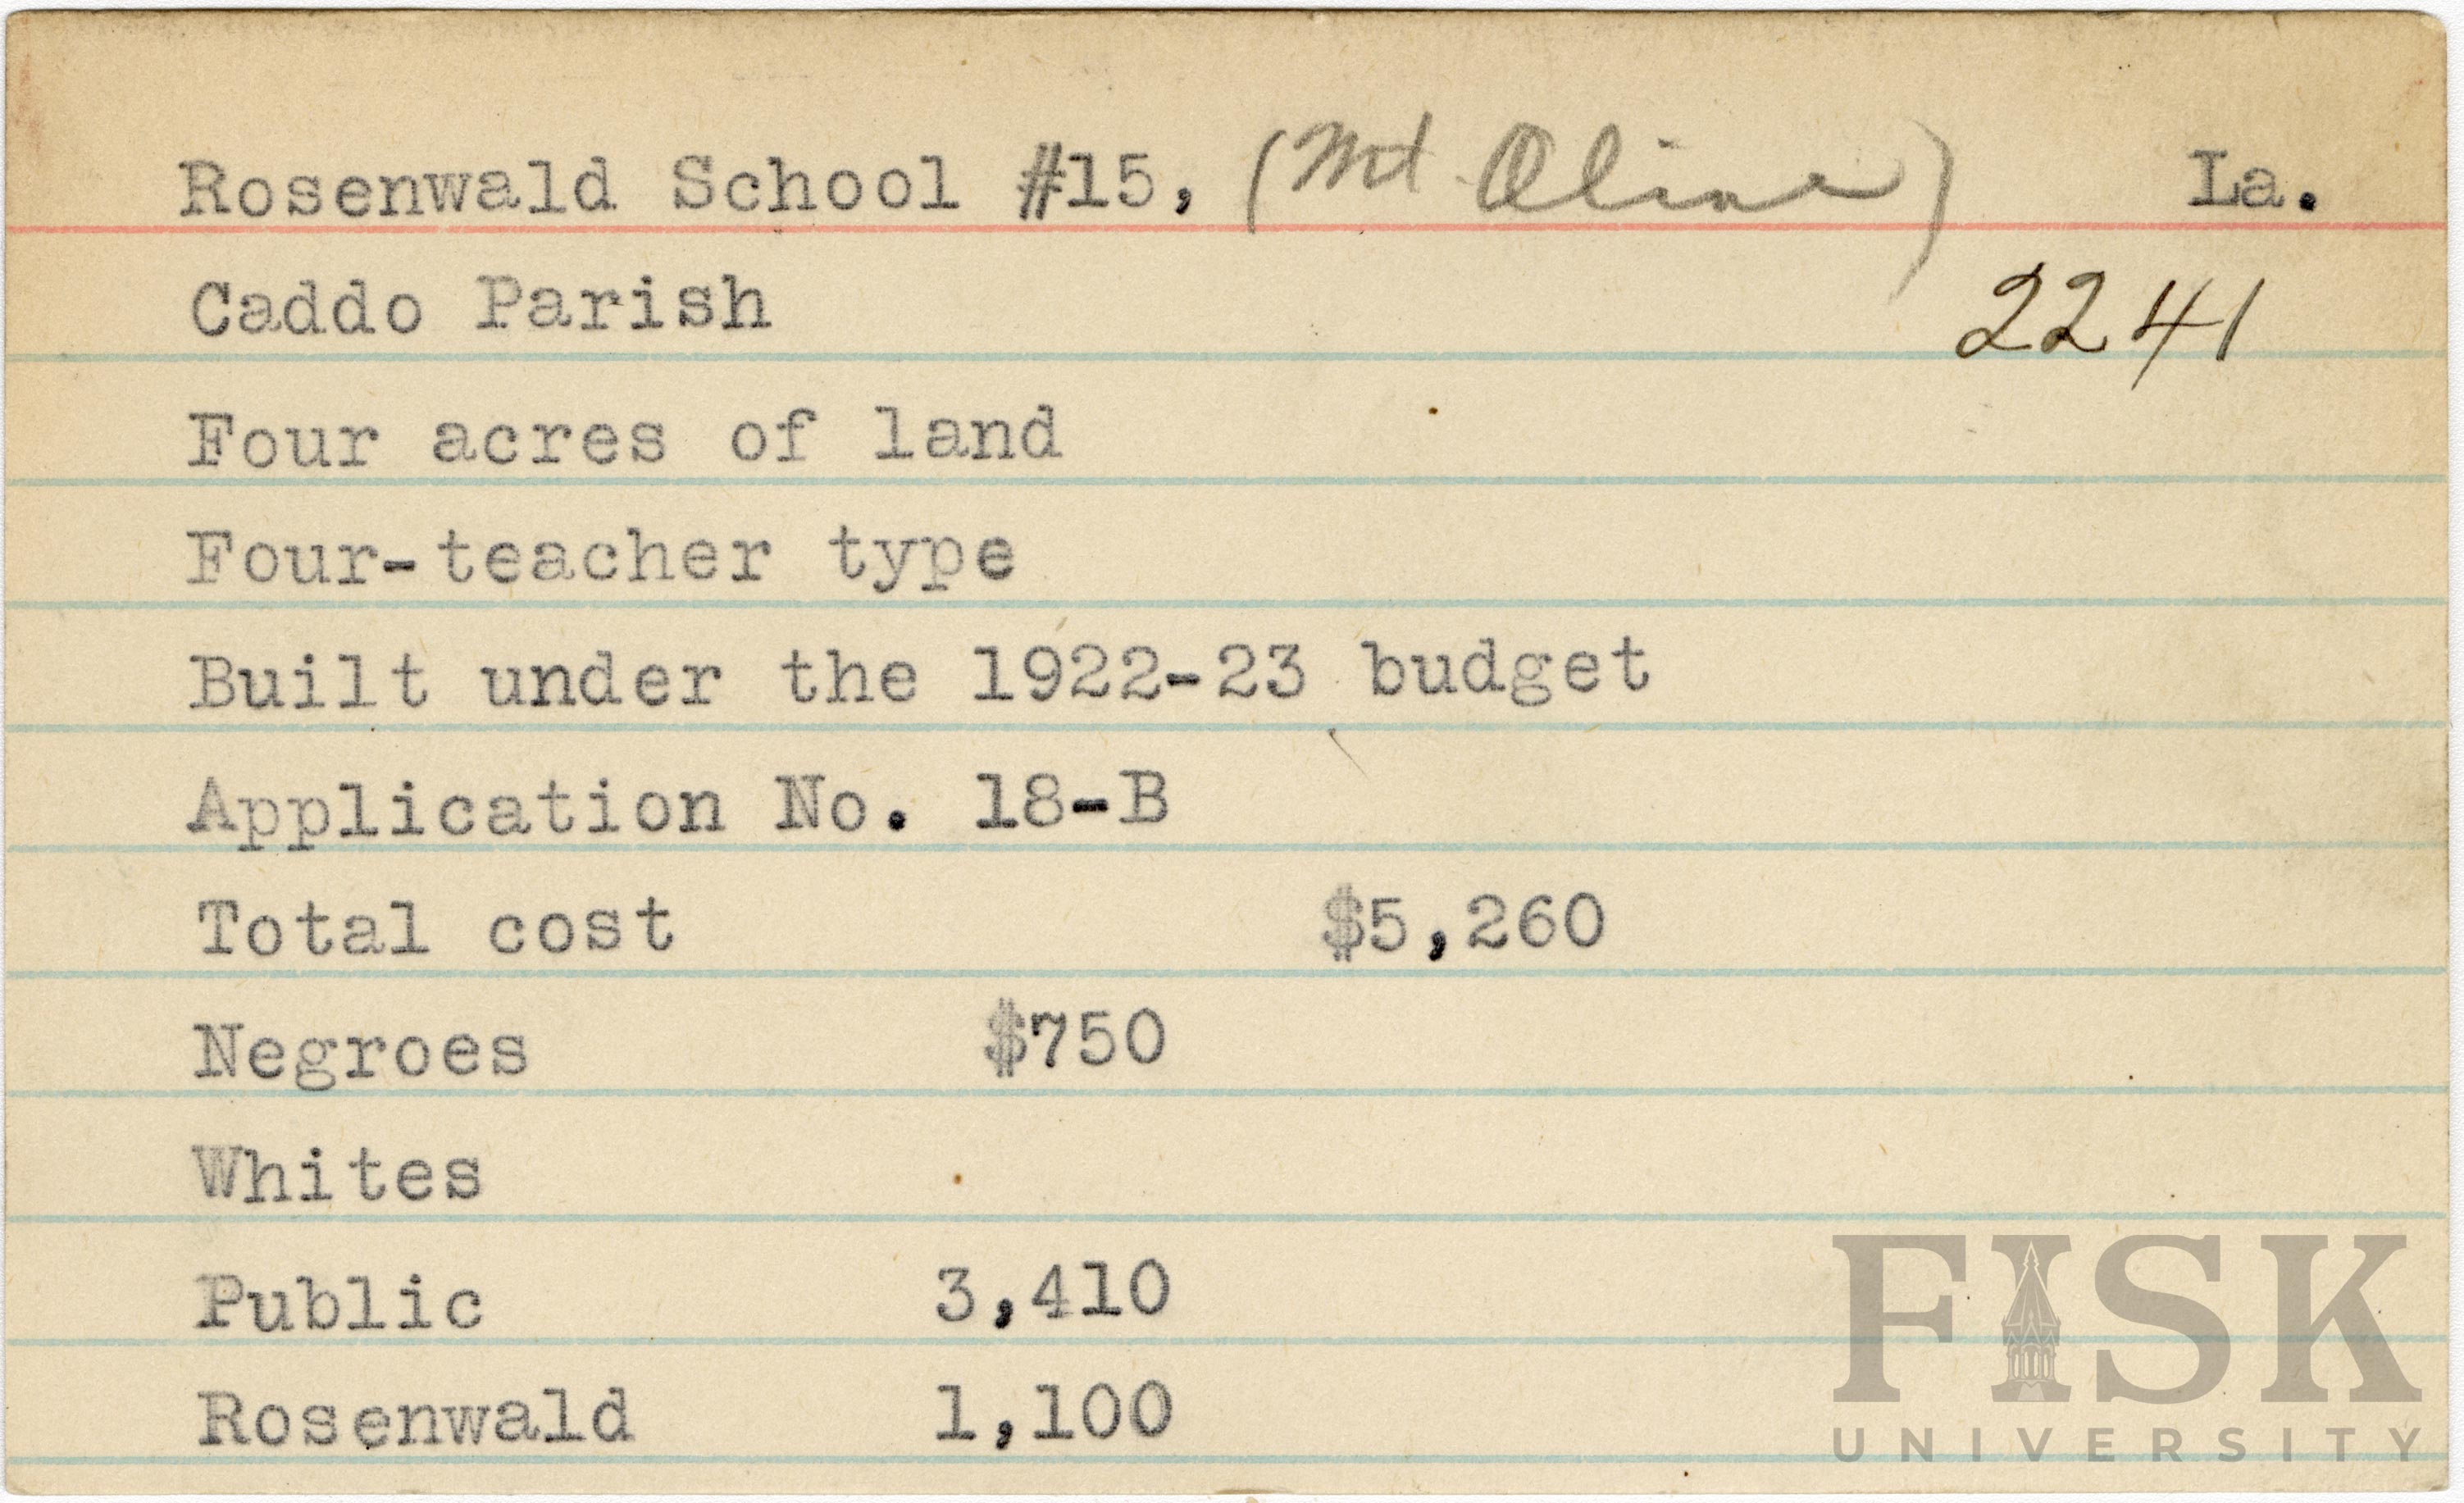 Rosenwald School #15, (Mt Olive) La.
Caddo Parish 2241
Four acres of land
Four-teacher type
Built under the 1922-23 budget
Application No. 18-B
Total cost $5,260
Negroes $750
Whites
Public 3,410
Rosenwald 1,100
FISK
UNIVERSITY